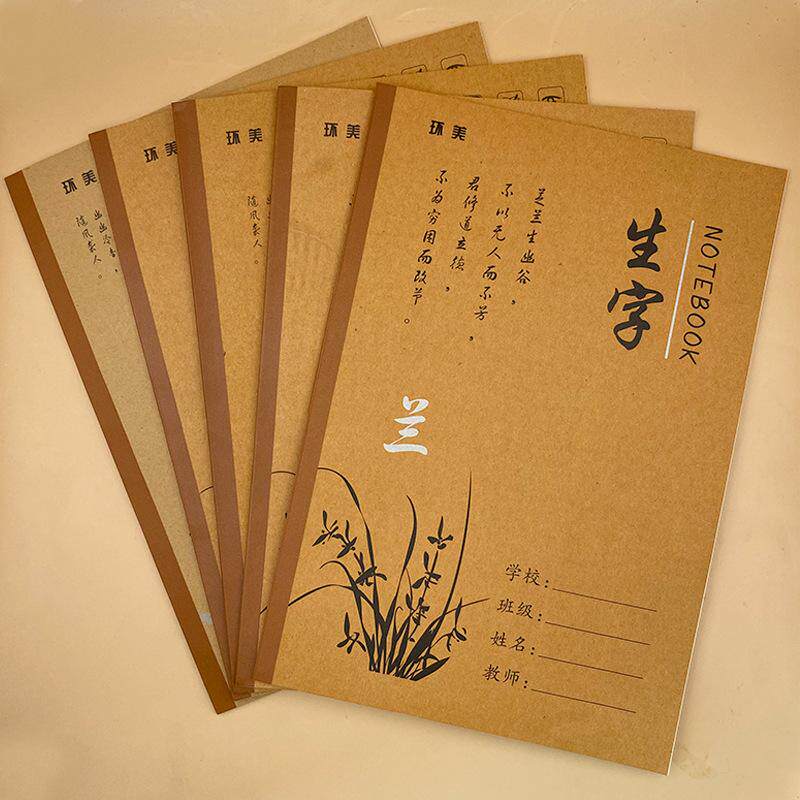 环美
幽幽冷香，
随风袭人。
环美
环美
环美
环美
芝兰生幽谷，
不以无人而不芳，
君修道立德，
不为穷困而改节。
生字
NOTEBOOK
兰
学校：
班级：
姓名：
教师：